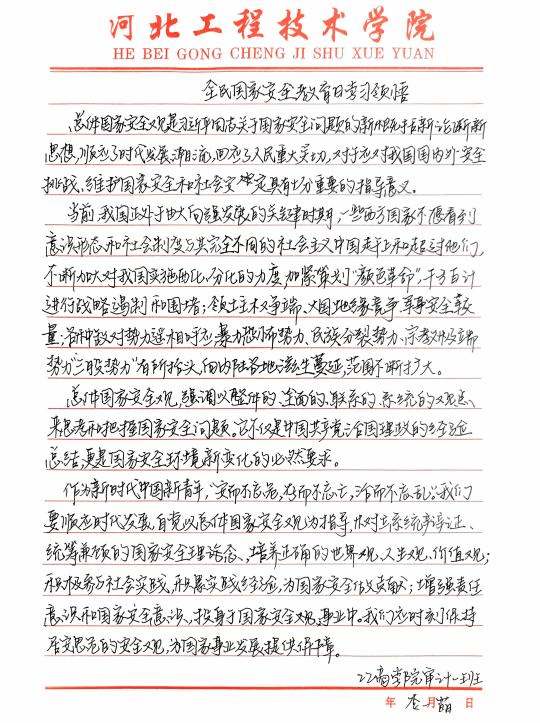 河北工程技术学院
HE BEI GONG CHENG JI SHU XUE YUAN
全民国家安全教育日学习领悟
总体国家安全观是习近平同志关于国家安全问题的新理论新
思想,顺应了时代发展潮流,回应了人民重大关切,对于应对我国国内外安全
挑战、维护国家安全和社会安定具有十分重要的指导意义。
当前,我国正处于由大向强发展的关键时期,一些西方国家不愿看到
意识形态和社会制度与其完全不同的社会主义中国走上和超过他们,
不断加大对我国实施西化、分化的力度,加紧策划“颜色革命”,千方百计
进行战略遏制和围堵;领土主权争端、大国地缘竞争、军事安全较
量;各种敌对势力遥相呼应暴力恐怖势力、民族分裂势力、宗教极端
势力“三股势力”有所抬头,向内陆各地滋生蔓延,范围不断扩大。
总体国家安全观,强调以整体的、全面的、联系的、系统的观点
来思考和把握国家安全问题。它不仅是中国共产党治国理政的经验
总结,更是国家安全环境新变化的必然要求。
作为新时代中国新青年,“安而不忘危,存而不忘亡,治而不忘乱”,我们
要顺应时代发展,自觉以总体国家安全观为指导,树立系统辩证、
统筹兼顾的国家安全理念、培养正确的世界观、人生观、价值观;
积极参与社会实践,积累实践经验,为国家安全做贡献;增强责任
意识和国家安全意识,投身于国家安全观事业中。我们应时刻保持
居安思危的安全观,为国家事业发展提供保障。
工商学院审计一班
年 月 日